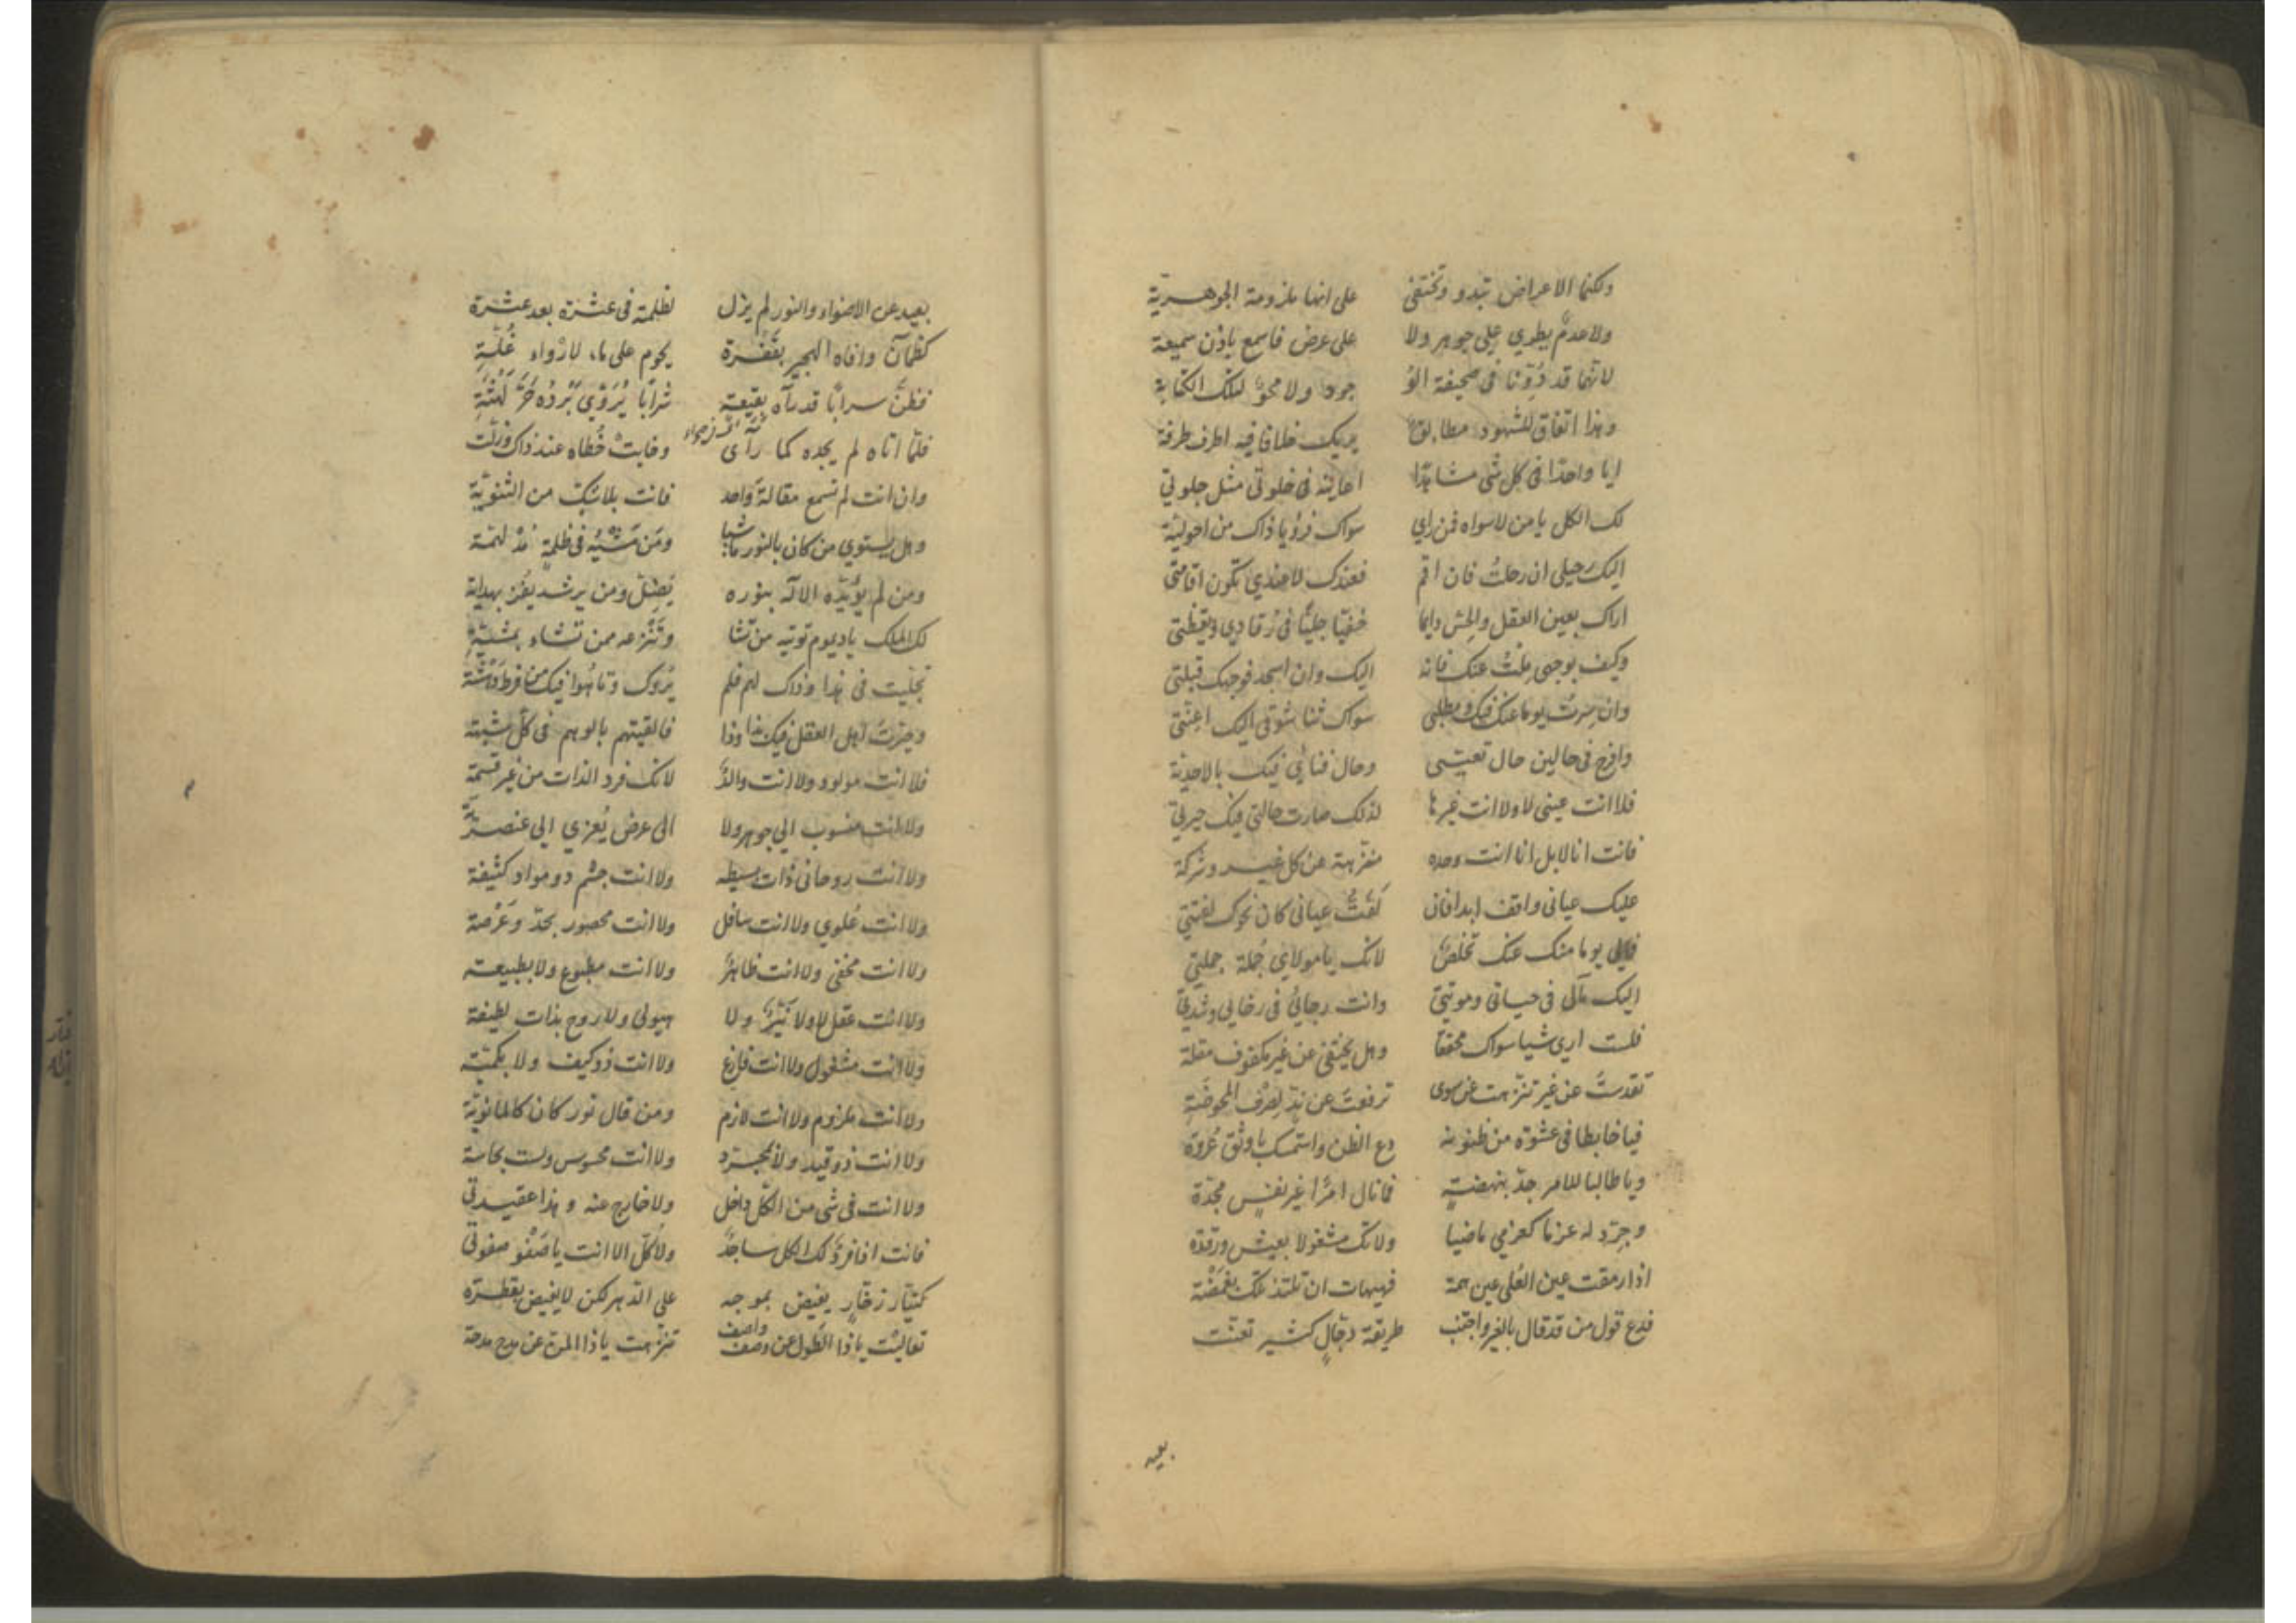 ولكنما الاعراض تبدو وتختفي على انها ملزومة الجوهرية
ولا عدم يطري على جوهر ولا على عرض فاسمع باذن سميعة
لانهما قد دُوّنا في صحيفة الوُ جود ولا محوٌ لتلك الكتابة
وهذا اتفاق للشهود مطابقٌ يريك خلافا فيه اطرف طرفة
ايا واحدًا في كل شي مشاهدًا اعاينه في خلوتي مثل جلوتي
لك الكل يا من لا سواه فمن راي سواك فرؤيا ذاك من احولية
اليك رحيلي ان رحلتُ فان اقم فعندك لا عندي تكون اقامتي
اراك بعين العقل والحس دايما خفيًا جليًّا في رُقادي ويقظتي
وكيف بوجهي مِلتُ عنك فانه اليك وان اسجد فوجهك قبلتي
وان سِرتُ يوما عنك فيك ومطلبي سواك ثنا شوقي اليك اعنتي
وافرح في حالين حال تعيني وحال فنائي فيك بالاحدية
فلا انت عيني لا ولا انت غيرها لذلك صارت حالتي فيك حيرتي
فانت انا لا بل انا انت وحده منزهة عن كل غير وشركة
عليك عياني واقف ابدا فان لَفَتُّ عياني كان نحوك لفتتي
فما لي يوما منك عنك تخلصٌ لانك يا مولاي جُملة جملتي
اليك مآلي في حياتي وموتتي وانت رجائي في رخايي وشدتي
فلست اري شيا سواك محققا وهل يختفي عن غير مكفوف مقلة
تقدستَ عن غير تنزهت عن سوى ترفعتَ عن ندّ لصرف المحوضَةِ
فيا خابطا في عشوة من ظنونه دع الظن واستمسك باوثق عُروة
ويا طالبا للامر جدّ بنهضةٍ فما نال امرًا غير نفسٍ مجدّة
وجرّد له عزما كعزمي ماضيا ولا تك مشغولا بعيش ورقدة
اذا رمقت عين العُلى عين همة فهيهات ان تلتذ تلك بغمضة
فدع قول من قد قال بالغير واجتنب طريقة دجّالٍ كثير تعنت
بعيد
بعيد عن الاضواء والنور لم يزل لظلمته في عشرة بعد عشرة
كظمآن وافاه الهجير بقَفْرة يحوم على ماء لارْواءِ غُلّةِ
فظنَّ سرابًا قد رآه بقِيعَةٍ شرابًا يُرَوّي بَرْدُه حَرَّ لَهْثَةِ
فلمّا اتاه لم يجده كما رأى وخابتْ خُطاه عند ذاك وزلّت
وان انت لم تسمع مقالة واحد فانت بلا شك من الثنوية
وهل يستوي من كان بالنور ماشيا ومَن مَشْيُه في ظلمةٍ مُدْلهمّة
ومن لم يؤيّده الاله بنوره يَضِلّ ومن يرشد يفز بهداية
لك الملك يا ديوم توتيه من تشا وتَنْزعه ممن تشاء بمشيّةِ
تجليت في هذا وذاك لهم فلم يَرَوك وتاهُوا فيك من فرط دَهْشَة
وحيّرتَ اهل العقل فيك بذا وذا فالقيتهم بالوهم في كل شبهة
فلا انت مولود ولا انت والدٌ لانك فرد الذات من غير قسمة
ولا انت منسوب الي جوهر ولا الى عرض يُعزي الي عنصريّة
ولا انت روحاني ذات بسيطه ولا انت جسم ذو مواد كثيفة
ولا انت عُلوي ولا انت سافل ولا انت محصور بحدّ وعَرْصة
ولا انت مخفي ولا انت ظاهرٌ ولا انت مطبوع ولا بطبيعة
ولا انت عقل لا ولا نَيّرٌ ولا هيولى ولا روح بذات لطيفة
ولا انت مشغول ولا انت فارغ ولا انت ذو كيف ولا بكمّيّة
ولا انت ملزوم ولا انت لازم ومن قال نور كان كالمانويّة
ولا انت ذو قيد ولا بمجرّد ولا انت محسوس ولست بحاسة
ولا انت في شي من الكل داخل ولا خارج عنه وهذا عقيدتي
فانت اذا فردٌ لك الكل ساجدٌ ولا كلّ الا انت يا صَفْو صفوتي
كتيّار زخّارٍ يفيض بموجه علي الدهر لكن لا يغيض بقطرة
تعاليتَ يا ذا الطَول عن وصف واصف تنزهت يا ذا المن عن مدح مدحة